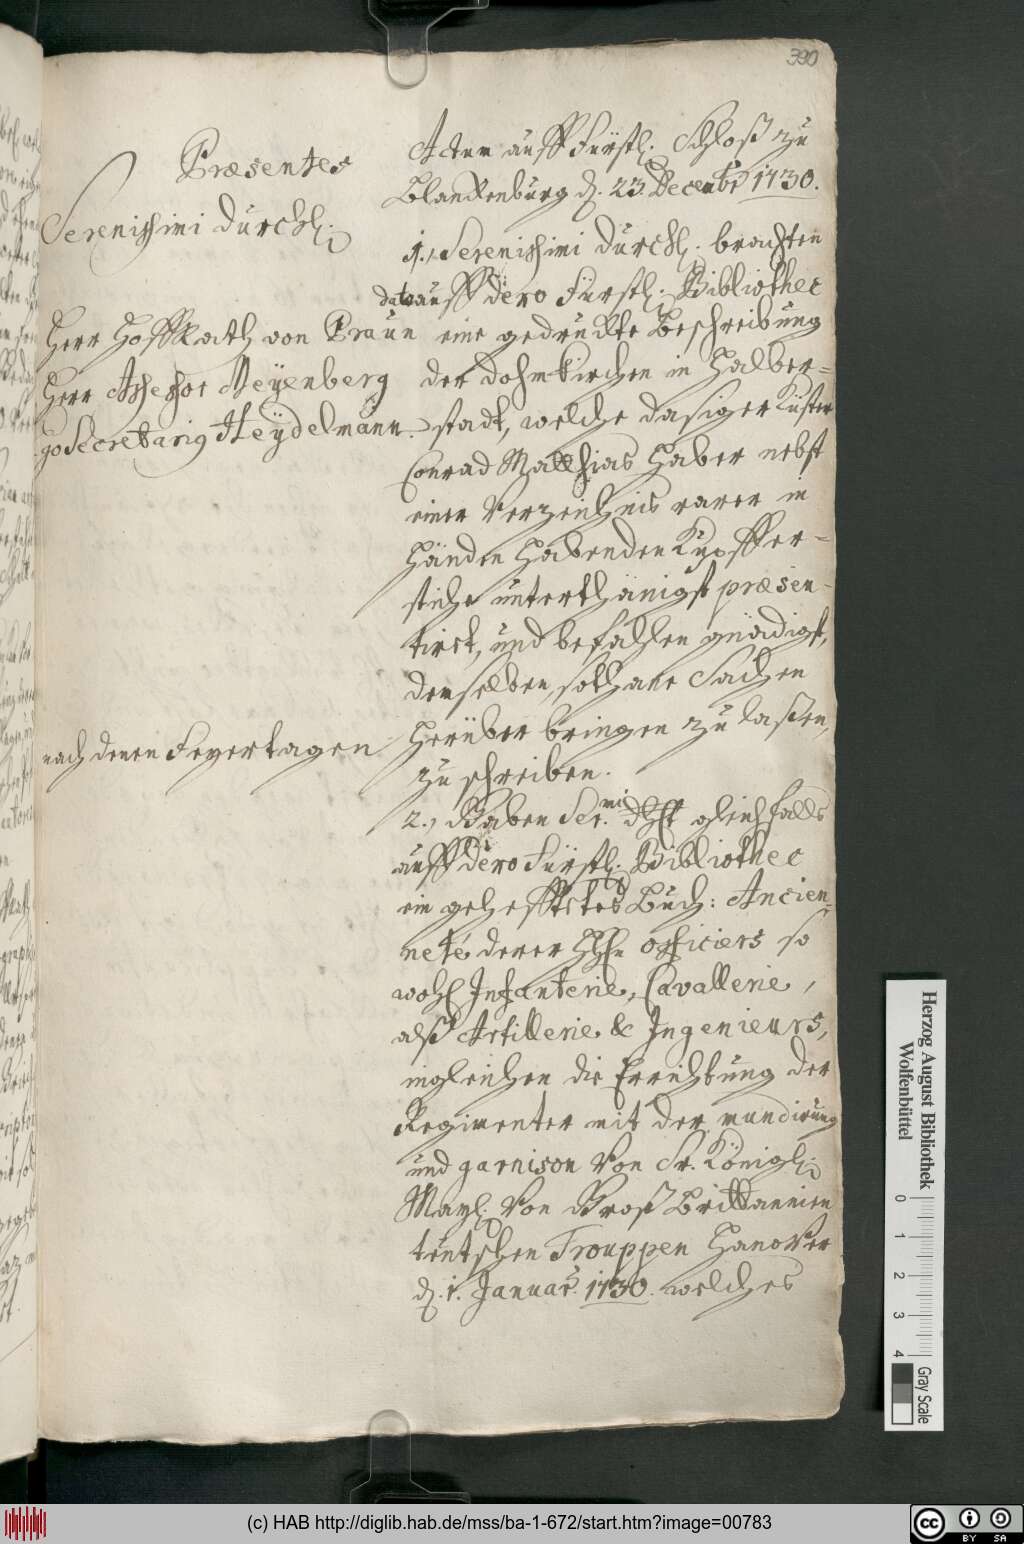 390
Præsentes
Serenissimi Durchl.
Herr HoffRath von Praun
Herr Assessor Meyenberg
Secretarig Heydelmann.
nach denen Feyertagen
Actum auff Fürstl. Schloß zu
Blanckenburg d. 23. Decembr 1730.
1., Serenissimi Durchl. brachten
dato auff dero Fürstl. Bibliothec
eine gedruckte Beschreibung
der Dohmkirchen in Halber=
stadt, welche dasiger Küster
Conrad Matthias Haber nebst
einer Verzeichnis rarer in
Händen habenden Kupffer=
stiche unterthänigst præsen-
tirt, und befahlen gnädigst,
demselben, sothane Sachen
herüber bringen zu laßen,
zu schreiben.
2., Gaben Ser. mi dht gleichfalls
auff dero Fürstl. Bibliothec
ein gehefftetes Buch: Ancien=
neté derer HHn officiers so
wohl Infanterie, Cavallerie,
alß Artillerie & Ingenieurs,
ingleichen die Errichtung der
Regimenter mit der mundirung
und garnison Von Sr. Königl.
Mayl. Von Groß Brittannien
teutschen Trouppen Hanover
d. 1. Januar. 1730. welches
Herzog August Bibliothek
Wolfenbüttel
0 1 2 3 4
Gray Scale
(c) HAB http://diglib.hab.de/mss/ba-1-672/start.htm?image=00783
cc BY SA